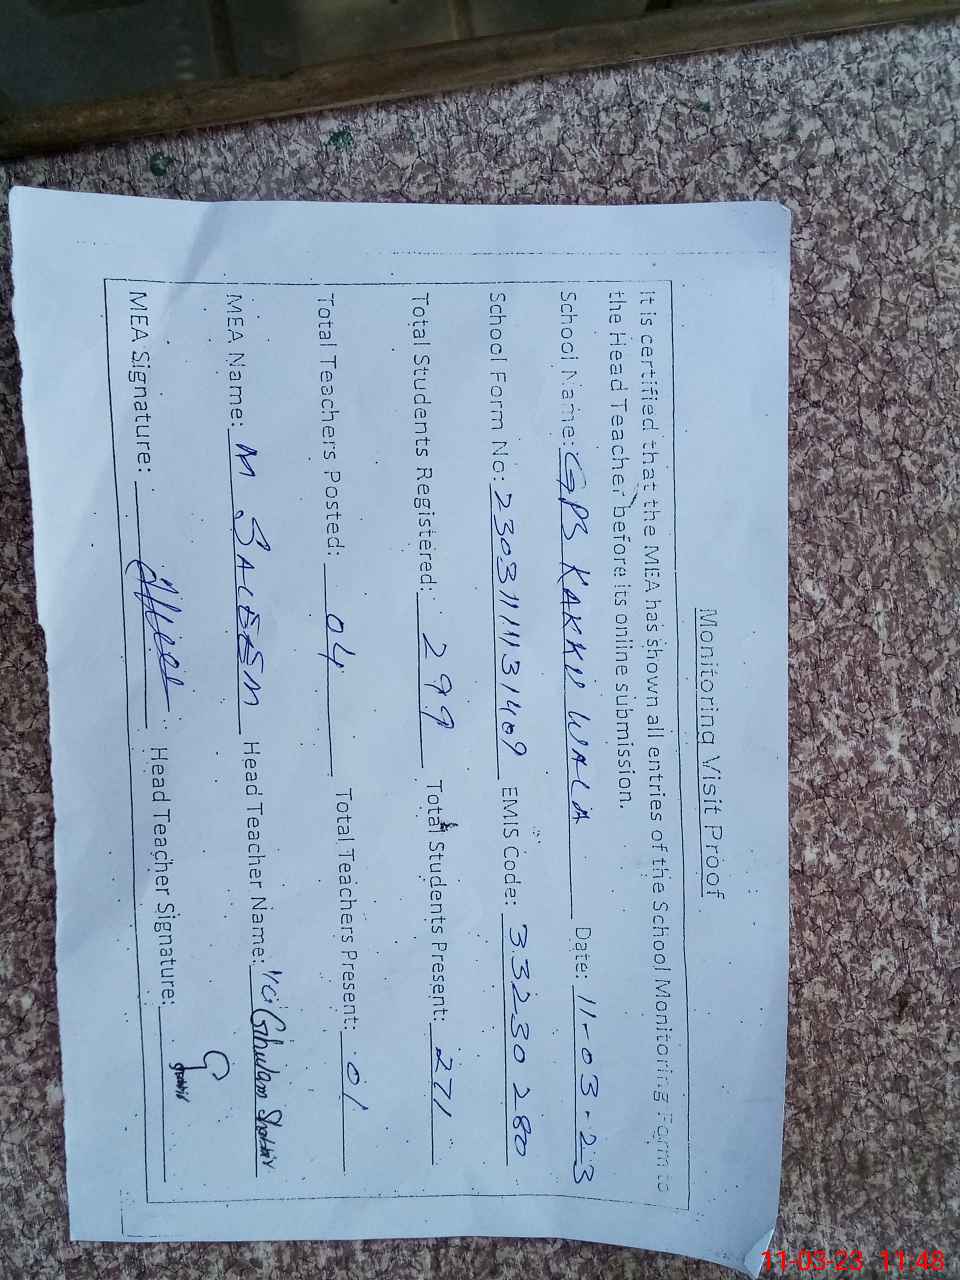 Monitoring Visit Proof
It is certified that the MEA has shown all entries of the School Monitoring Form to
the Head Teacher before its online submission.
School Name: GPS KAKKU WALA Date: 11-03-23
School Form No: 2303111131409 EMIS Code: 33230280
Total Students Registered: 299 Total Students Present: 271
Total Teachers Posted: 04 Total Teachers Present: 01
MEA Name: M SALEEM Head Teacher Name: Ghulam Shabbir
MEA Signature: Head Teacher Signature:
11-03-23 11:48